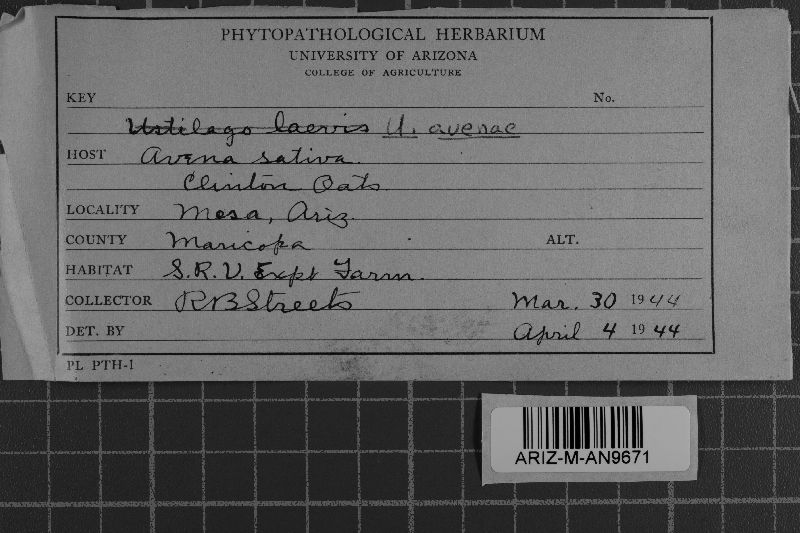 PHYTOPATHOLOGICAL HERBARIUM
UNIVERSITY OF ARIZONA
COLLEGE OF AGRICULTURE
KEY No.
Ustilago laevis U. avenae
HOST Avena sativa.
Clinton Oats
LOCALITY Mesa, Ariz.
COUNTY Maricopa ALT.
HABITAT S.R.V. Expt Farm.
COLLECTOR RBStreets Mar. 30 1944
DET. BY April 4 1944
PL PTH-1
ARIZ-M-AN9671